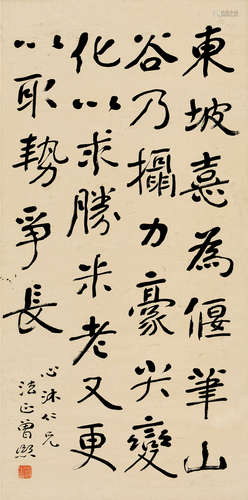 東坡憙為偃筆山
谷乃攝力豪尖變
化以求勝米老又更
以取勢爭長
心沐仁兄
法正曾熙